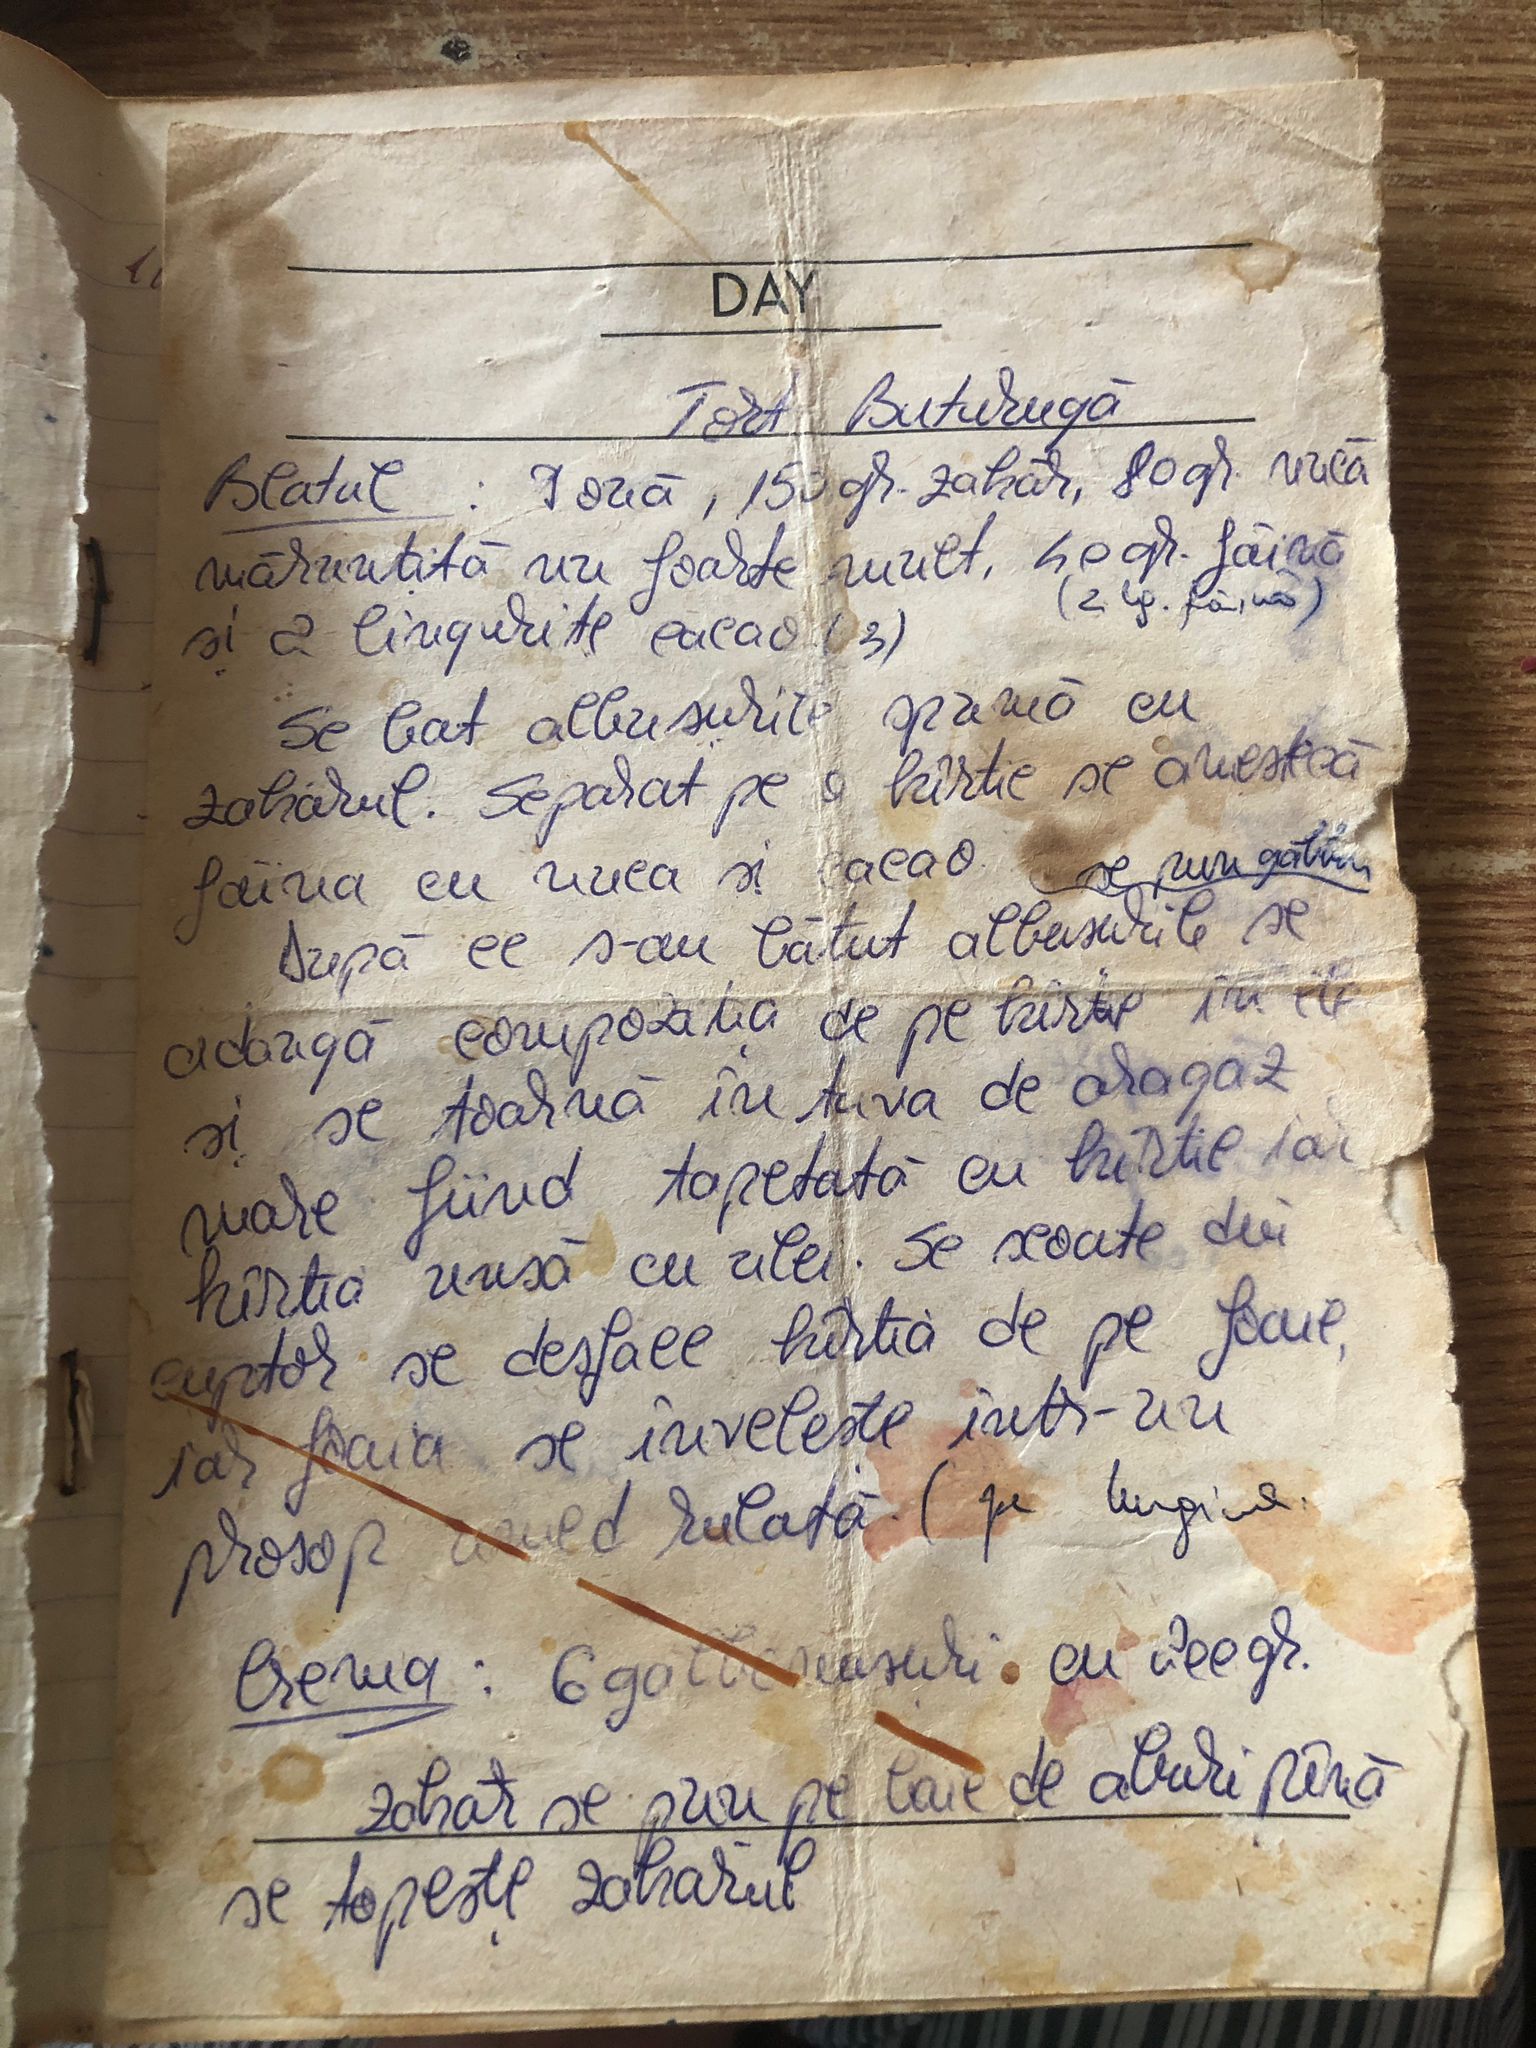 DAY
Tort Buturugă
Blatul : 7 ouă, 150 gr. zahăr, 80 gr. nucă
mărunțită nu foarte mult, 40 gr. făină
(2 lg. făină)
și 2 lingurițe cacao (3)
Se bat albușurile spumă cu
zahărul. Separat pe o hîrtie se amestecă
făina cu nuca și cacao. se pun gălbin
După ce s-au bătut albușurile se
adaugă compoziția de pe hîrtie în ele
și se toarnă în tava de aragaz
mare fiind tapetată cu hîrtie iar
hîrtia unsă cu ulei. Se scoate din
cuptor se desface hîrtia de pe foaie,
iar foaia se învelește într-un
prosop umed rulată. (pe lungime.
Crema : 6 gălbenușuri cu 200 gr.
zahăr se pun pe baie de aburi pînă
se topește zahărul